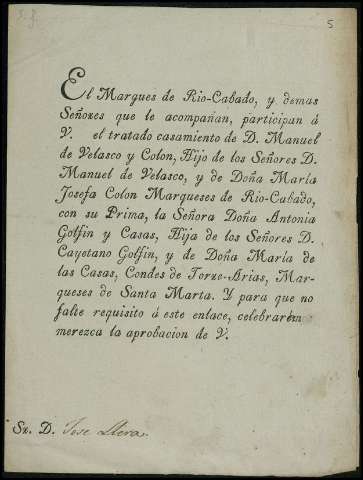 5
El Marques de Rio-Cabado, y demas
Señores que le acompañan, participan á
V. el tratado casamiento de D. Manuel
de Velasco y Colon, Hijo de los Señores D.
Manuel de Velasco, y de Doña María
Josefa Colon Marqueses de Rio-Cabado,
con su Prima, la Señora Doña Antonia
Golfin y Casas, Hija de los Señores D.
Cayetano Golfin, y de Doña María de
las Casas, Condes de Torre-Arias, Mar-
queses de Santa Marta. Y para que no
falte requisito á este enlace, celebrarèm
merezca la aprobacion de V.
Sr. D. Jose Llera.